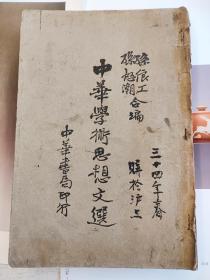 孫俍工
孫怒潮 合編
三十四年十二月春
購於沪上
中華學術思想文選
中華書局印行